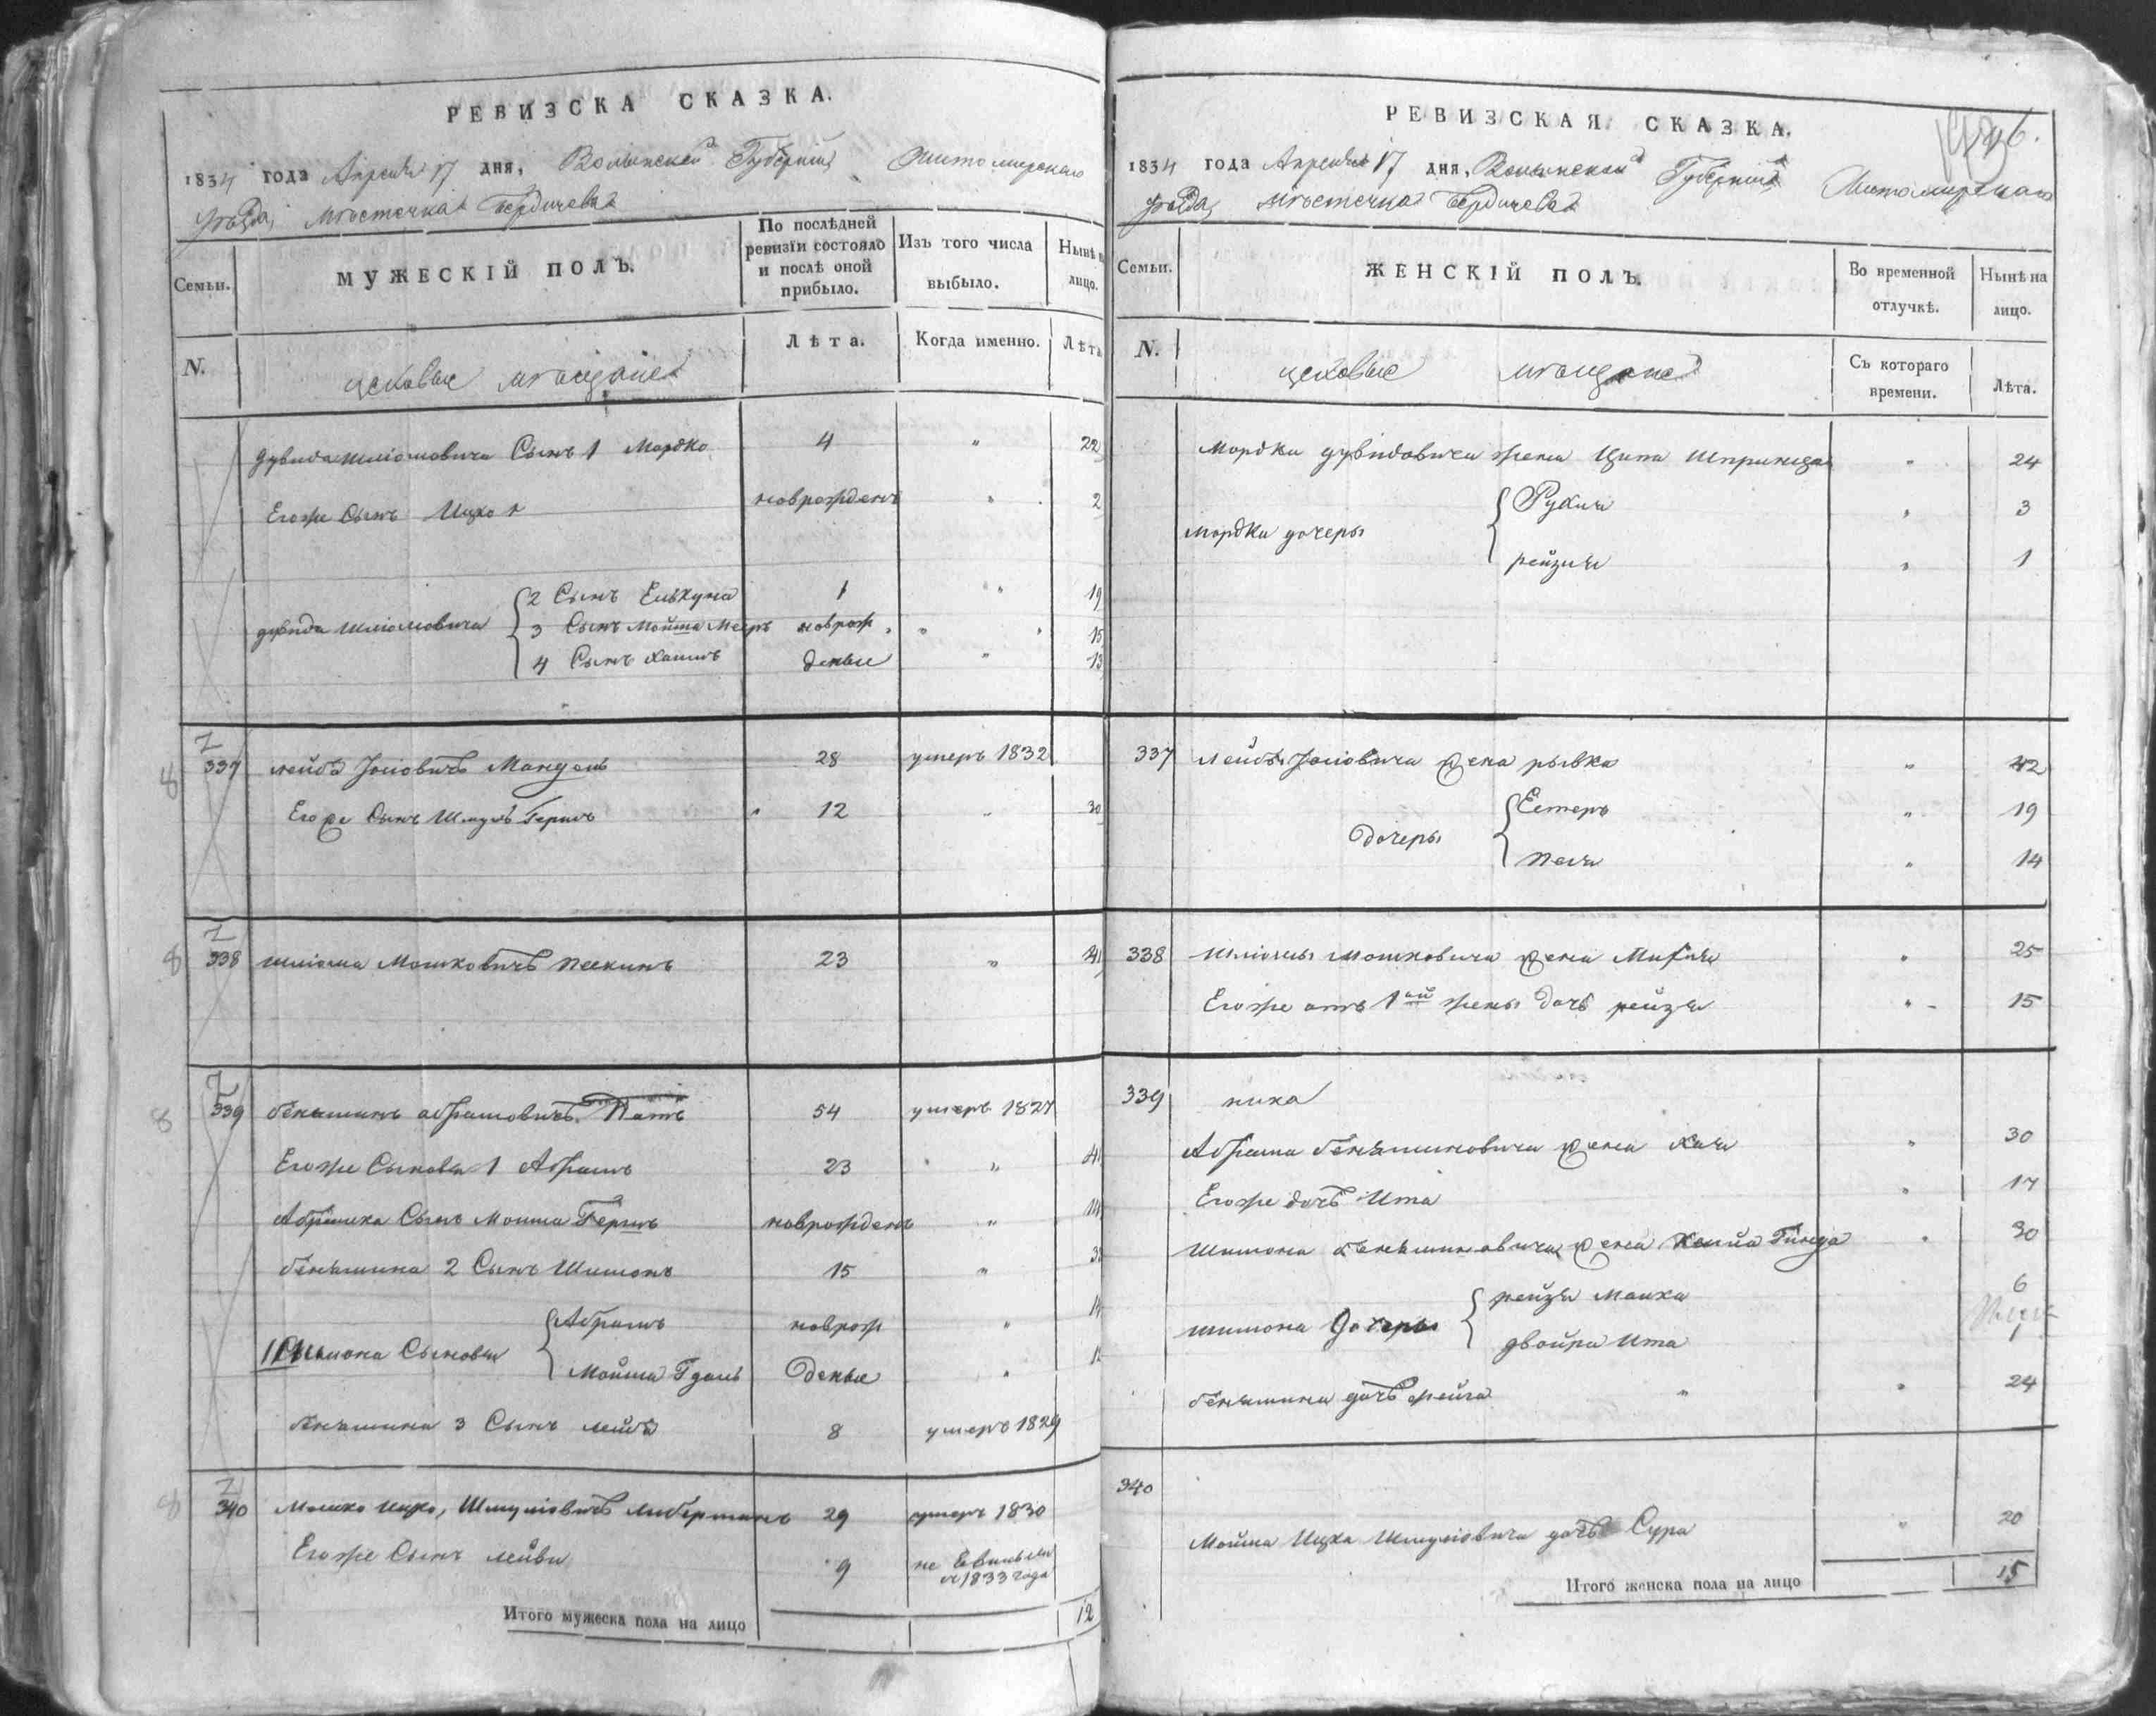 РЕВИЗСКА СКАЗКА.
1834 года Апреля 17 дня, Волынской Губернии Житомирскаго
уезда, местечка Бердичева
Семьи.
МУЖЕСКІЙ ПОЛЪ.
По послѣдней ревизіи состояло и послѣ оной прибыло.
Изъ того числа выбыло.
Нынѣ на лицо.
N.
цеховые мещане
Лѣта.
Когда именно.
Лѣта
дувида шліомовича Сынъ 1 Мордко 4 " 22
Егоже Сынъ Ицко новрожденъ " 2
дувида шліомовича
2 Сынъ Ельхуна 1 " 19
3 Сынъ Мойша Мееръ новрож " 15
4 Сынъ Хаимъ деные " 13
337 лейба Јосіовичъ Мандель 28 умеръ 1832
Егоже Сынъ Шмуль Гершъ 12 " 30
338 шліома Мошковичъ пескинъ 23 " 41
339 бенѣминъ абрамовичъ 54 умеръ 1827
Егоже Сыновья 1 Абрамъ 23 " 41
Абрамка Сынъ Мошка Гершъ новрожденъ "
бенѣмина 2 Сынъ Шимонъ 15 "
Шимона Сыновья
Абрамъ новрож "
Мойша Гдаль деные "
бенѣмина 3 Сынъ лейба 8 умеръ 1829
340 Мошко Ицко, Шмуліовичъ либерманъ 29 умеръ 1830
Егоже Сынъ лейви 9 не
с 1833 года
Итого мужеска пола на лицо 12
РЕВИЗСКАЯ СКАЗКА.
1834 года Апреля 17 дня, Волынской Губернии Житомирскаго
уезда, местечка Бердичева
Семьи.
ЖЕНСКІЙ ПОЛЪ.
Во временной отлучкѣ.
Нынѣ на лицо.
N.
цеховые мещане
Съ котораго времени.
Лѣта.
Мордки дувидовича жена Ципа Шпринца " 24
Мордки дочеры
Рухля " 3
рейзля " 1
337 лейбы Јосіовича жена рывка " 42
Дочеры
Естеръ " 19
песя " 14
338 шліомы мошковича жена " 25
Егоже отъ 1ой жены дочь рейзя " 15
339
Абрама бенѣминовича жена Хая " 30
Егоже дочь Ита " 17
Шимона бенѣминовича жена Гинда " 30
шимона Дочеры
рейзя 6
двойра Ита 1
бенѣмина дочь " 24
340
Мошка Ицка Шмуліовича дочь Сура " 20
Итого женска пола на лицо 15